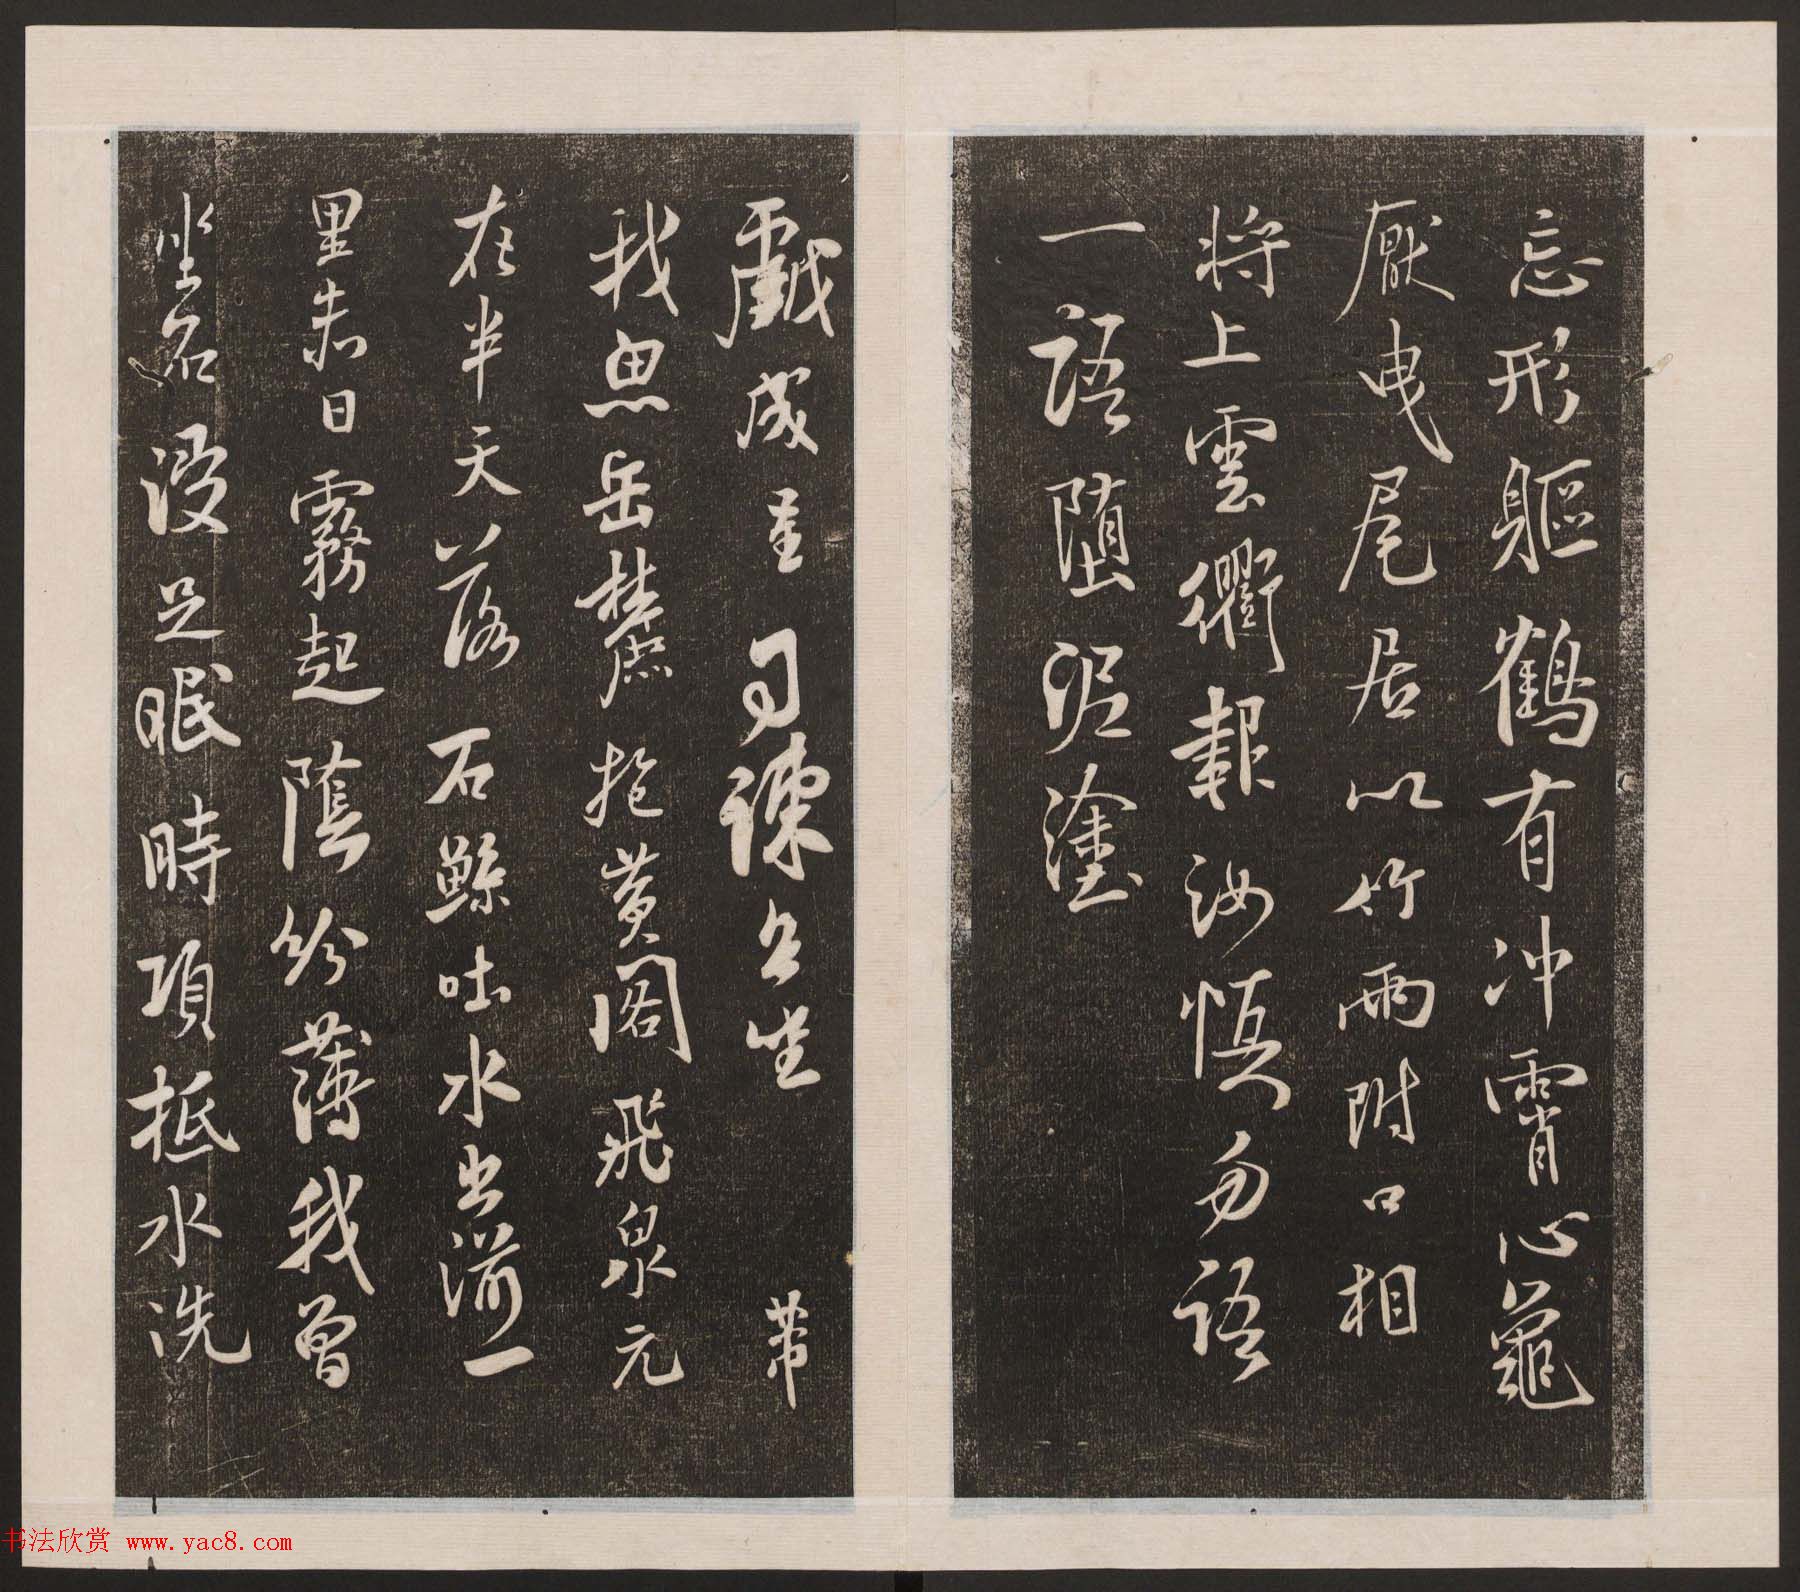 忘形軀鶴有冲霄心龜
厭曳尾居以竹兩附口相
將上雲衢報汝慎勿語
一語墮泥塗
戲成呈司諫台坐 芾
我思岳麓抱黃閣飛泉元
在半天落石鯨吐水出湔一
里赤日霧起陰紛薄我曾
坐石浸足眠時項抵水洗
书法欣赏 www.yac8.com